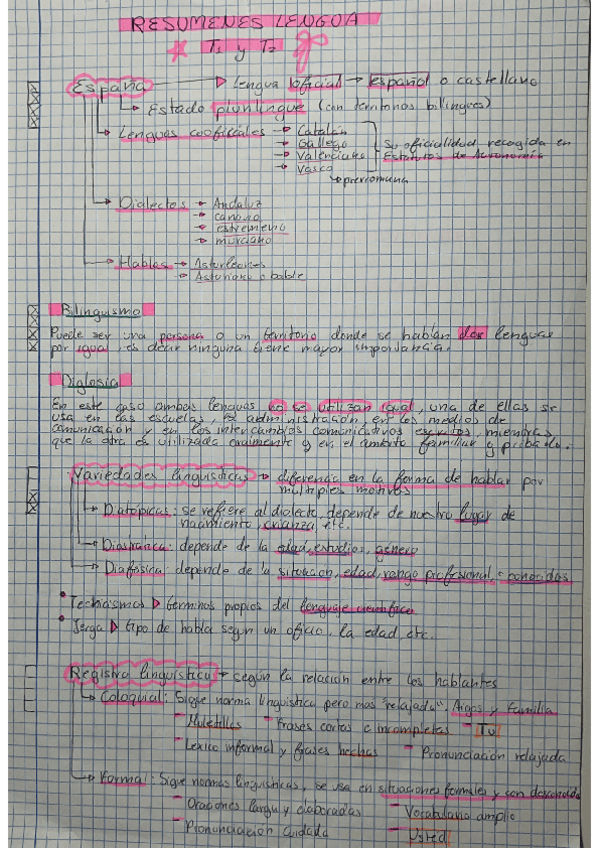 RESUMENES LENGUA
T1 y T2
España → Lengua oficial → español o castellano
Estado plurilingüe (con territorios bilingües)
Lenguas cooficiales → Catalán
→ Gallego
→ Valenciano
→ Vasco
Su oficialidad recogida en
Estatutos de Autonomía
→ prerromana
Dialectos → Andaluz
→ canario
→ extremeño
→ murciano
Hablas → Asturleones
→ Asturiano o bable
Bilinguismo
Puede ser una persona o un territorio donde se hablan dos lenguas
por igual, es decir ninguna tiene mayor importancia.
Diglosia
En este caso ambas lenguas no se utilizan igual, una de ellas se
usa en las escuelas, la administración, en los medios de
comunicación y en los intercambios comunicativos escritos, mientras
que la otra es utilizada oralmente y en el ámbito familiar y privado.
Variedades linguisticas → diferencia en la forma de hablar por
múltiples motivos
Diatópicas: se refiere al dialecto, depende de nuestro lugar de
nacimiento, crianza, etc.
Diastrática: depende de la edad, estudios, género
Diafásica: depende de la situacion, edad, rango profesional,
Tecnicismos → terminos propios del lenguaje cientifico
Jerga → tipo de habla segun un oficio, la edad etc.
Registro linguistico → según la relacion entre los hablantes
Coloquial: Sigue norma linguistica pero mas "relajada": Amigos y Familia
- Muletillas - Frases cortas e incompletas - Tú
- Lexico informal y frases hechas - Pronunciación relajada
Formal: Sigue normas linguisticas, se usa en situaciones formales y con desconocidos
- Oraciones largas y elaboradas - Vocabulario amplio
- Pronunciación cuidada - Usted